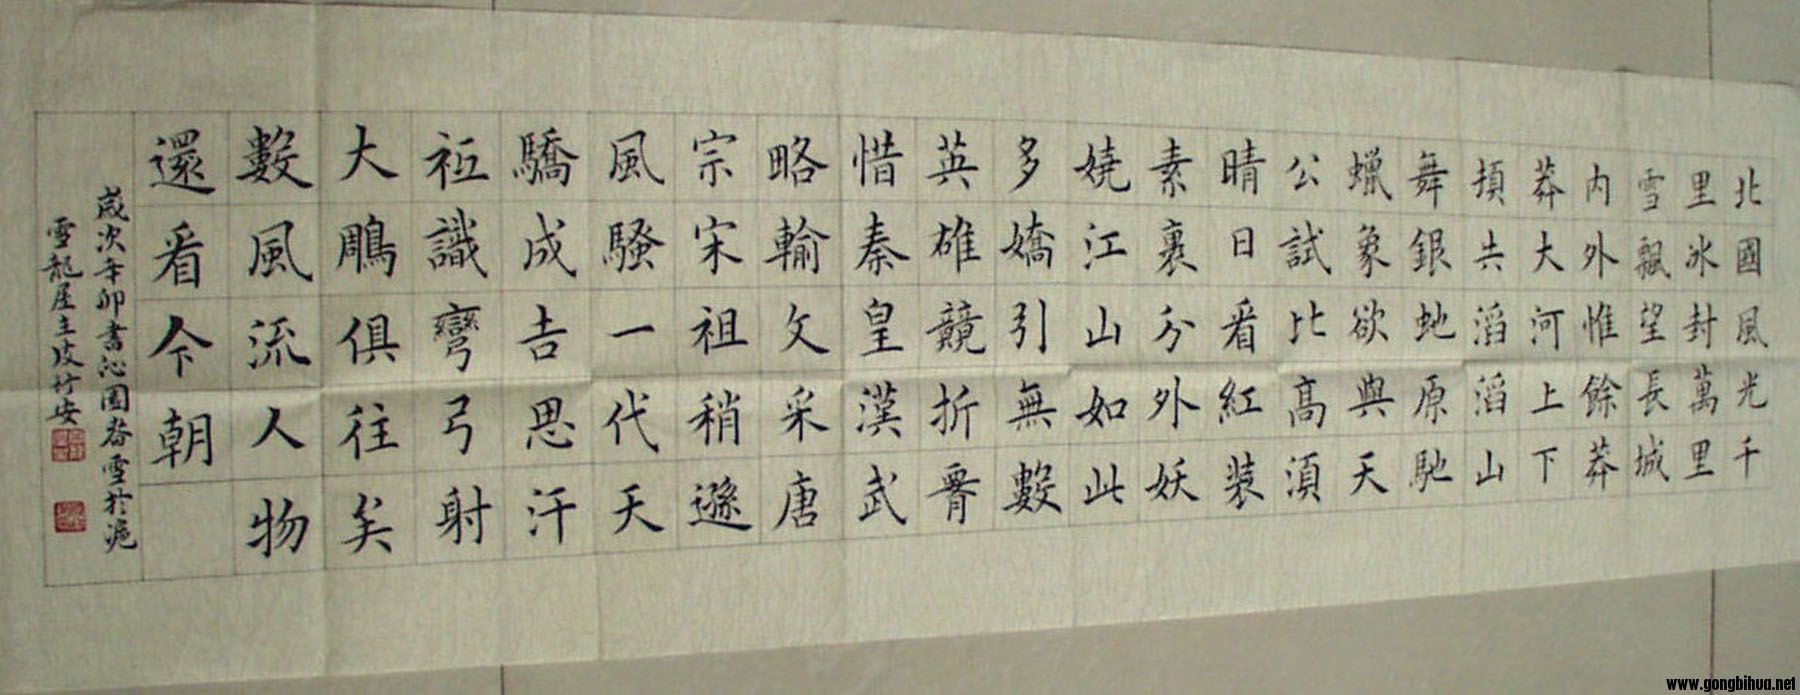 北國風光千
里冰封萬里
雪飄望長城
内外惟餘莽
莽大河上下
頓失滔滔山
舞銀虵原馳
蠟象欲與天
公試比高須
晴日看紅裝
素裹分外妖
嬈江山如此
多嬌引無數
英雄競折腰
惜秦皇漢武
略輸文采唐
宗宋祖稍遜
風騷一代天
驕成吉思汗
祗識彎弓射
大鵰俱往矣
數風流人物
還看今朝
歲次辛卯書沁園春雪於滬
雪龍居主
www.gongbihua.net